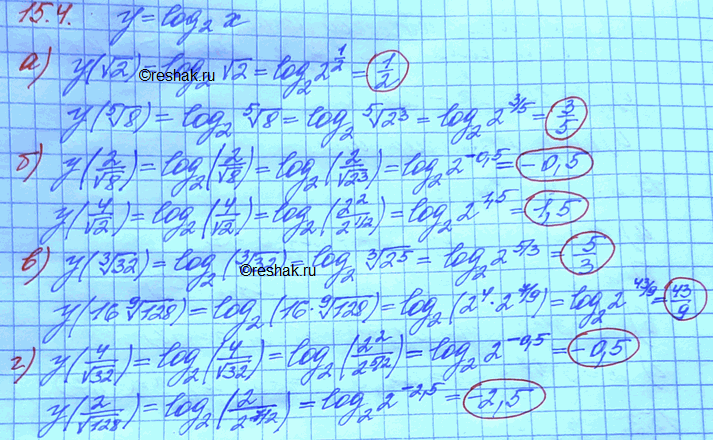 15.4. y = log₂ x
а) y(√2) = log₂ √2 = log₂ 2^(1/2) = 1/2
©reshak.ru
y(⁵√8) = log₂ ⁵√8 = log₂ ⁵√2³ = log₂ 2^(3/5) = 3/5
б) y(2/√8) = log₂(2/√8) = log₂(2/√2³) = log₂ 2^(-0,5) = -0,5
y(4/√2) = log₂(4/√2) = log₂(2²/2^(1/2)) = log₂ 2^(1,5) = 1,5
в) y(³√32) = log₂(³√32) = log₂ ³√2⁵ = log₂ 2^(5/3) = 5/3
©reshak.ru
y(16 ⁹√128) = log₂(16·⁹√128) = log₂(2⁴·2^(7/9)) = log₂ 2^(43/9) = 43/9
г) y(4/√32) = log₂(4/√32) = log₂(2²/2^(5/2)) = log₂ 2^(-0,5) = -0,5
y(2/√128) = log₂(2/2^(7/2)) = log₂ 2^(-2,5) = -2,5